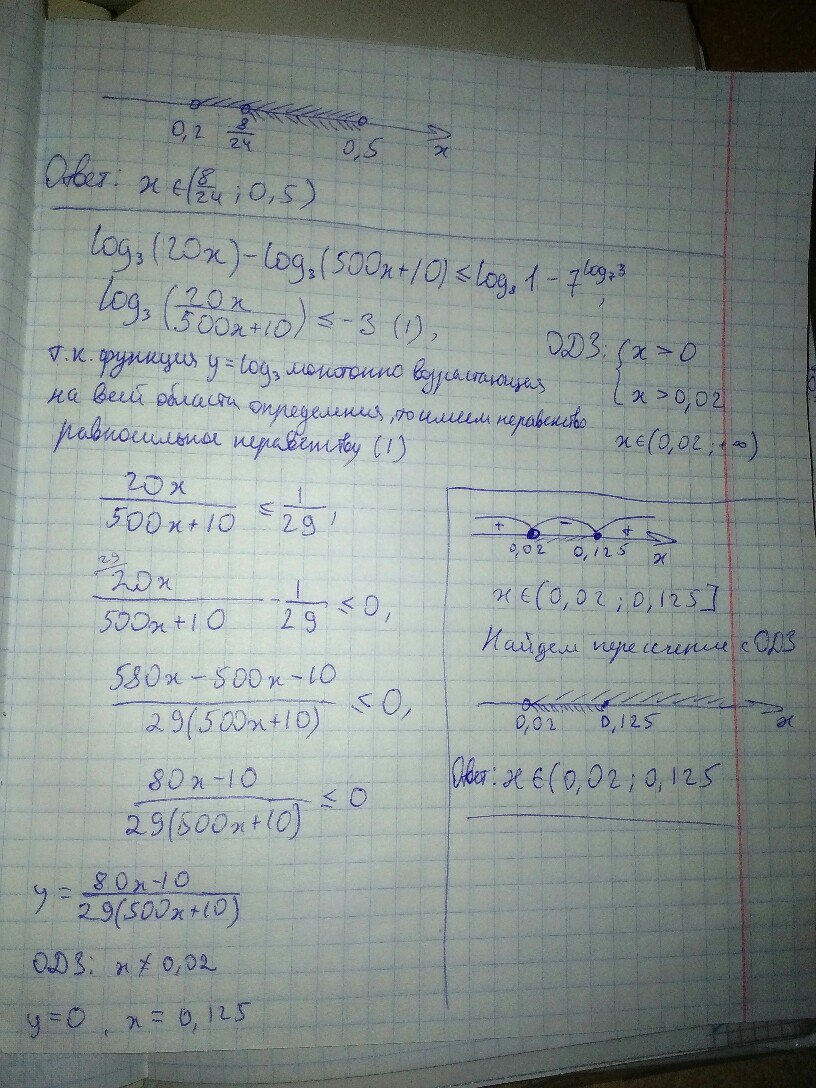 0,2 8/24 0,5 x
Ответ: x ∈ (8/24 ; 0,5)
log₃(20x) − log₃(500x+10) ≤ log₈ 1 − 7^(log₇3) ;
log₃(20x/(500x+10)) ≤ −3 (1),
ОДЗ: { x > 0
x > 0,02
x ∈ (0,02 ; +∞)
т.к. функция y = log₃ монотонно возрастающая
на всей области определения, то имеем неравенство
равносильное неравенству (1)
20x/(500x+10) ≤ 1/29,
29
20x/(500x+10) − 1/29 ≤ 0,
(580x − 500x − 10)/(29(500x+10)) ≤ 0,
(80x−10)/(29(500x+10)) ≤ 0
y = (80x−10)/(29(500x+10))
ОДЗ: x ≠ 0,02
y = 0 , x = 0,125
+ − +
0,02 0,125 x
x ∈ (0,02 ; 0,125]
Найдем пересечение с ОДЗ
0,02 0,125 x
Ответ: x ∈ (0,02 ; 0,125